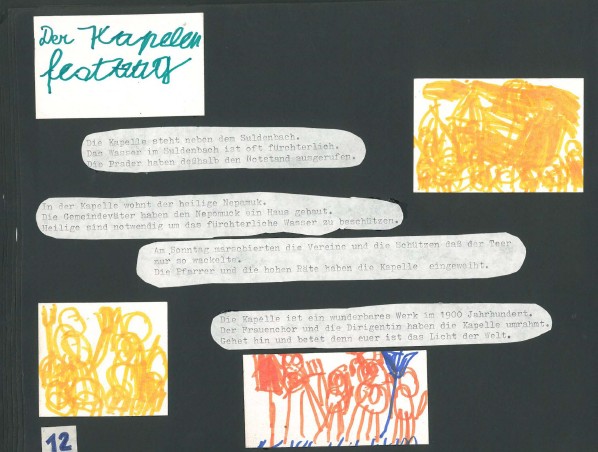 Der Kapelen
festzug
Die Kapelle steht neben dem Suldenbach.
Das Wasser im Suldenbach ist oft fürchterlich.
Die Prader haben deßhalb den Notstand ausgerufen.
In der Kapelle wohnt der heilige Nepomuk.
Die Gemeindeväter haben den Nepomuck ein Haus gebaut.
Heilige sind notwendig um das fürchterliche Wasser zu beschützen.
Am Sonntag marschierten die Vereine und die Schützen daß der Teer
nur so wackelte.
Die Pfarrer und die hohen Räte haben die Kapelle eingeweiht.
Die Kapelle ist ein wunderbares Werk im 1900 Jahrhundert.
Der Frauenchor und die Dirigentin haben die Kapelle umrahmt.
Gehet hin und betet denn euer ist das Licht der Welt.
12